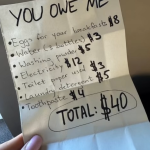 YOU OWE ME
• Eggs for your breakfasts $8
• Water (6 bottles) $3
• Washing powder $5
• Electricity $12
• Toilet paper used $3
• Laundry detergent $5
• Toothpaste $4
TOTAL: $40